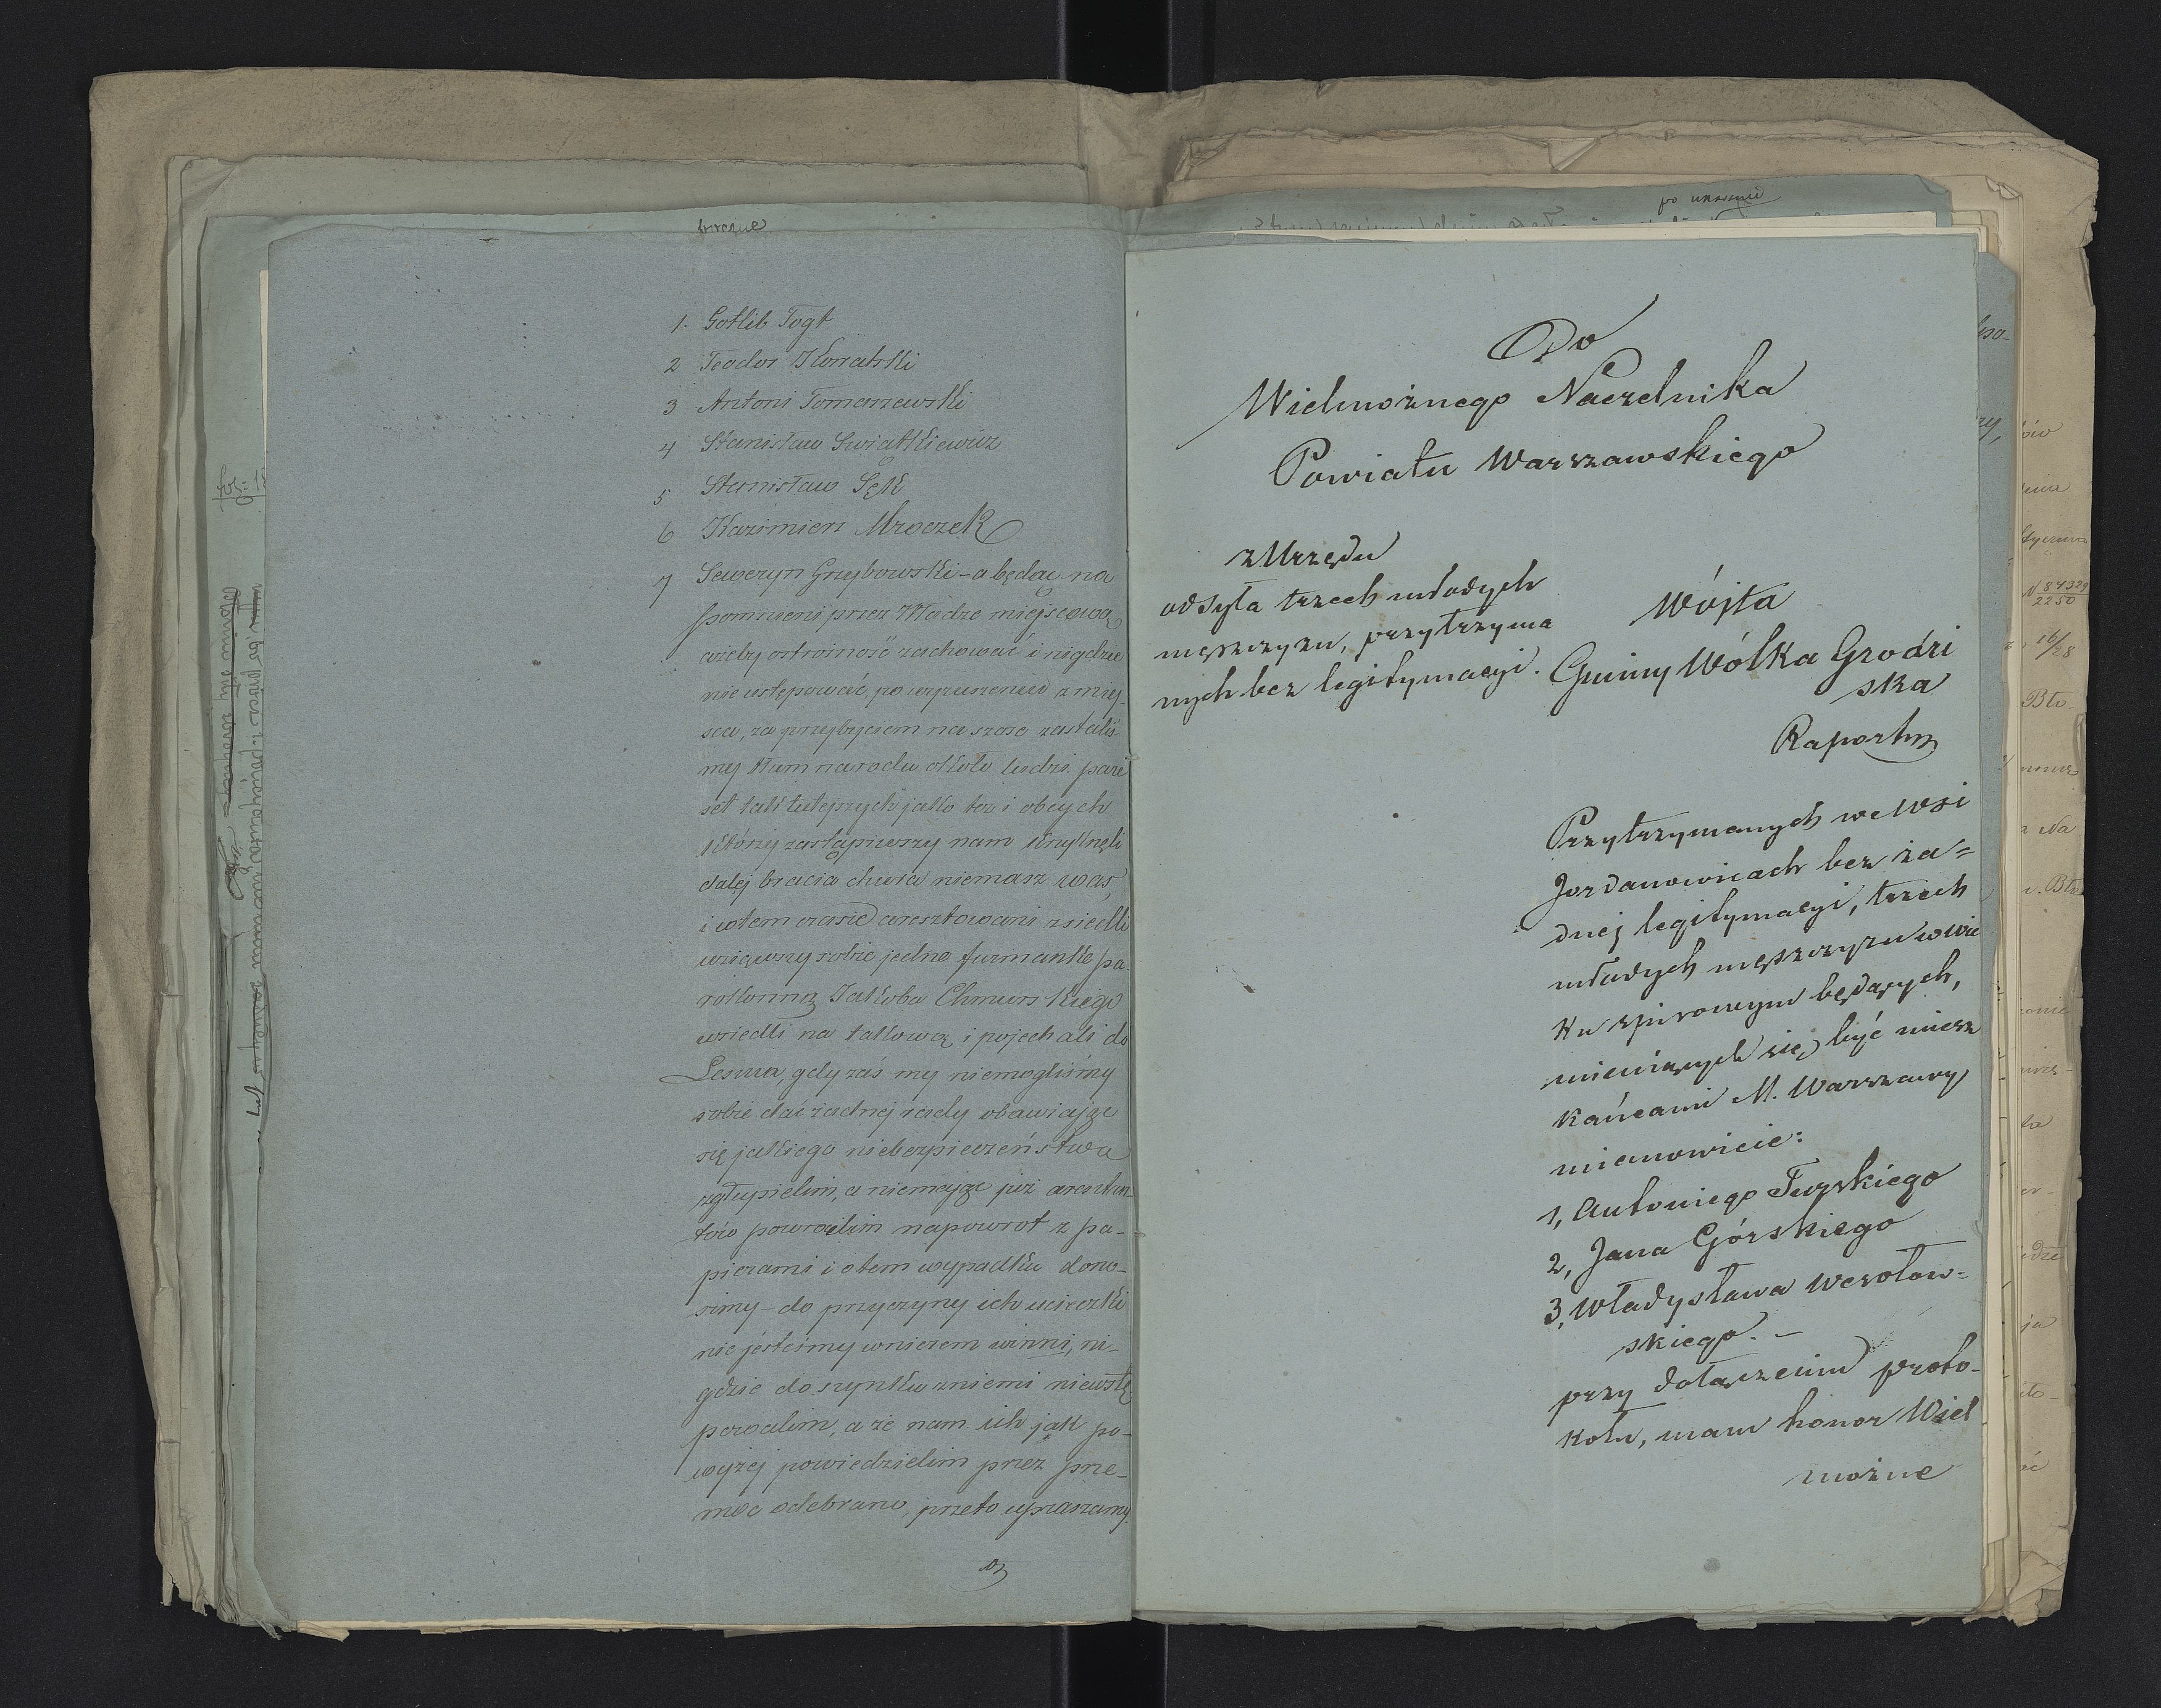 1. Gotlib Fogt
2 Teodor Kowalski
3 Antoni Tomaszewski
4 Stanisław Swiątkiewicz
5 Stanisław Sęk
6 Kazimierz Mroczek
7 Seweryn Grzybowski – a będąc na
pomnieni przez Władze miejscową
ażeby ostrożność zachować i nigdzie
nie wstępować, po wyruszeniu z miej-
sca, za przybyciem na szose zastaliś-
my tłum narodu około ludzi pare
set tak tutejszych jako też i obcych
którzy zastąpiwszy nam krzyknęli
dalej bracia chwra niemasz was,
i wtem czasie aresztowani zsiedli
wziąwszy sobie jedne furmanke pa-
rokonną Jakoba Chmurskiego
wsiedli na takową i pojechali do
Leszna, gdy zaś my niemogliśmy
sobie dać żadnej rady obawiając
się jakiego niebezpieczeństwa
zgłupielim, a niemając już aresztan-
tów powrócilim napowrot z pa-
pierami i otem wypadku dono-
simy – do przyczyny ich ucieczki
nie jesteśmy wniczem winni, ni-
gdzie do szynku zniemi niewstę
powalim, a że nam ich jak po-
wyżej powiedzielim przez prze-
moc odebrano, przeto upraszamy
Do
Wielmożnego Naczelnika
Powiatu Warszawskiego
z Urzędu
odsyła trzech młodych
męszczyzn, przytrzyma
nych bez legitymacyi.
Wójta
Gminy Wólka Grodzi
ska
Raport
Przytrzymanych we Wsi
Jordanowicach bez ża=
dnej legitymacyi, trzech
młodych męszczyzn w wie
ku spisowym będących,
mieniących się być miesz
kańcami M. Warszawy
mianowicie:
1, Antoniego Turskiego
2, Jana Górskiego
3, Władysława Wesołow=
skiego. –
przy dołączeniu proto-
kołu, mam honor Wiel
możne